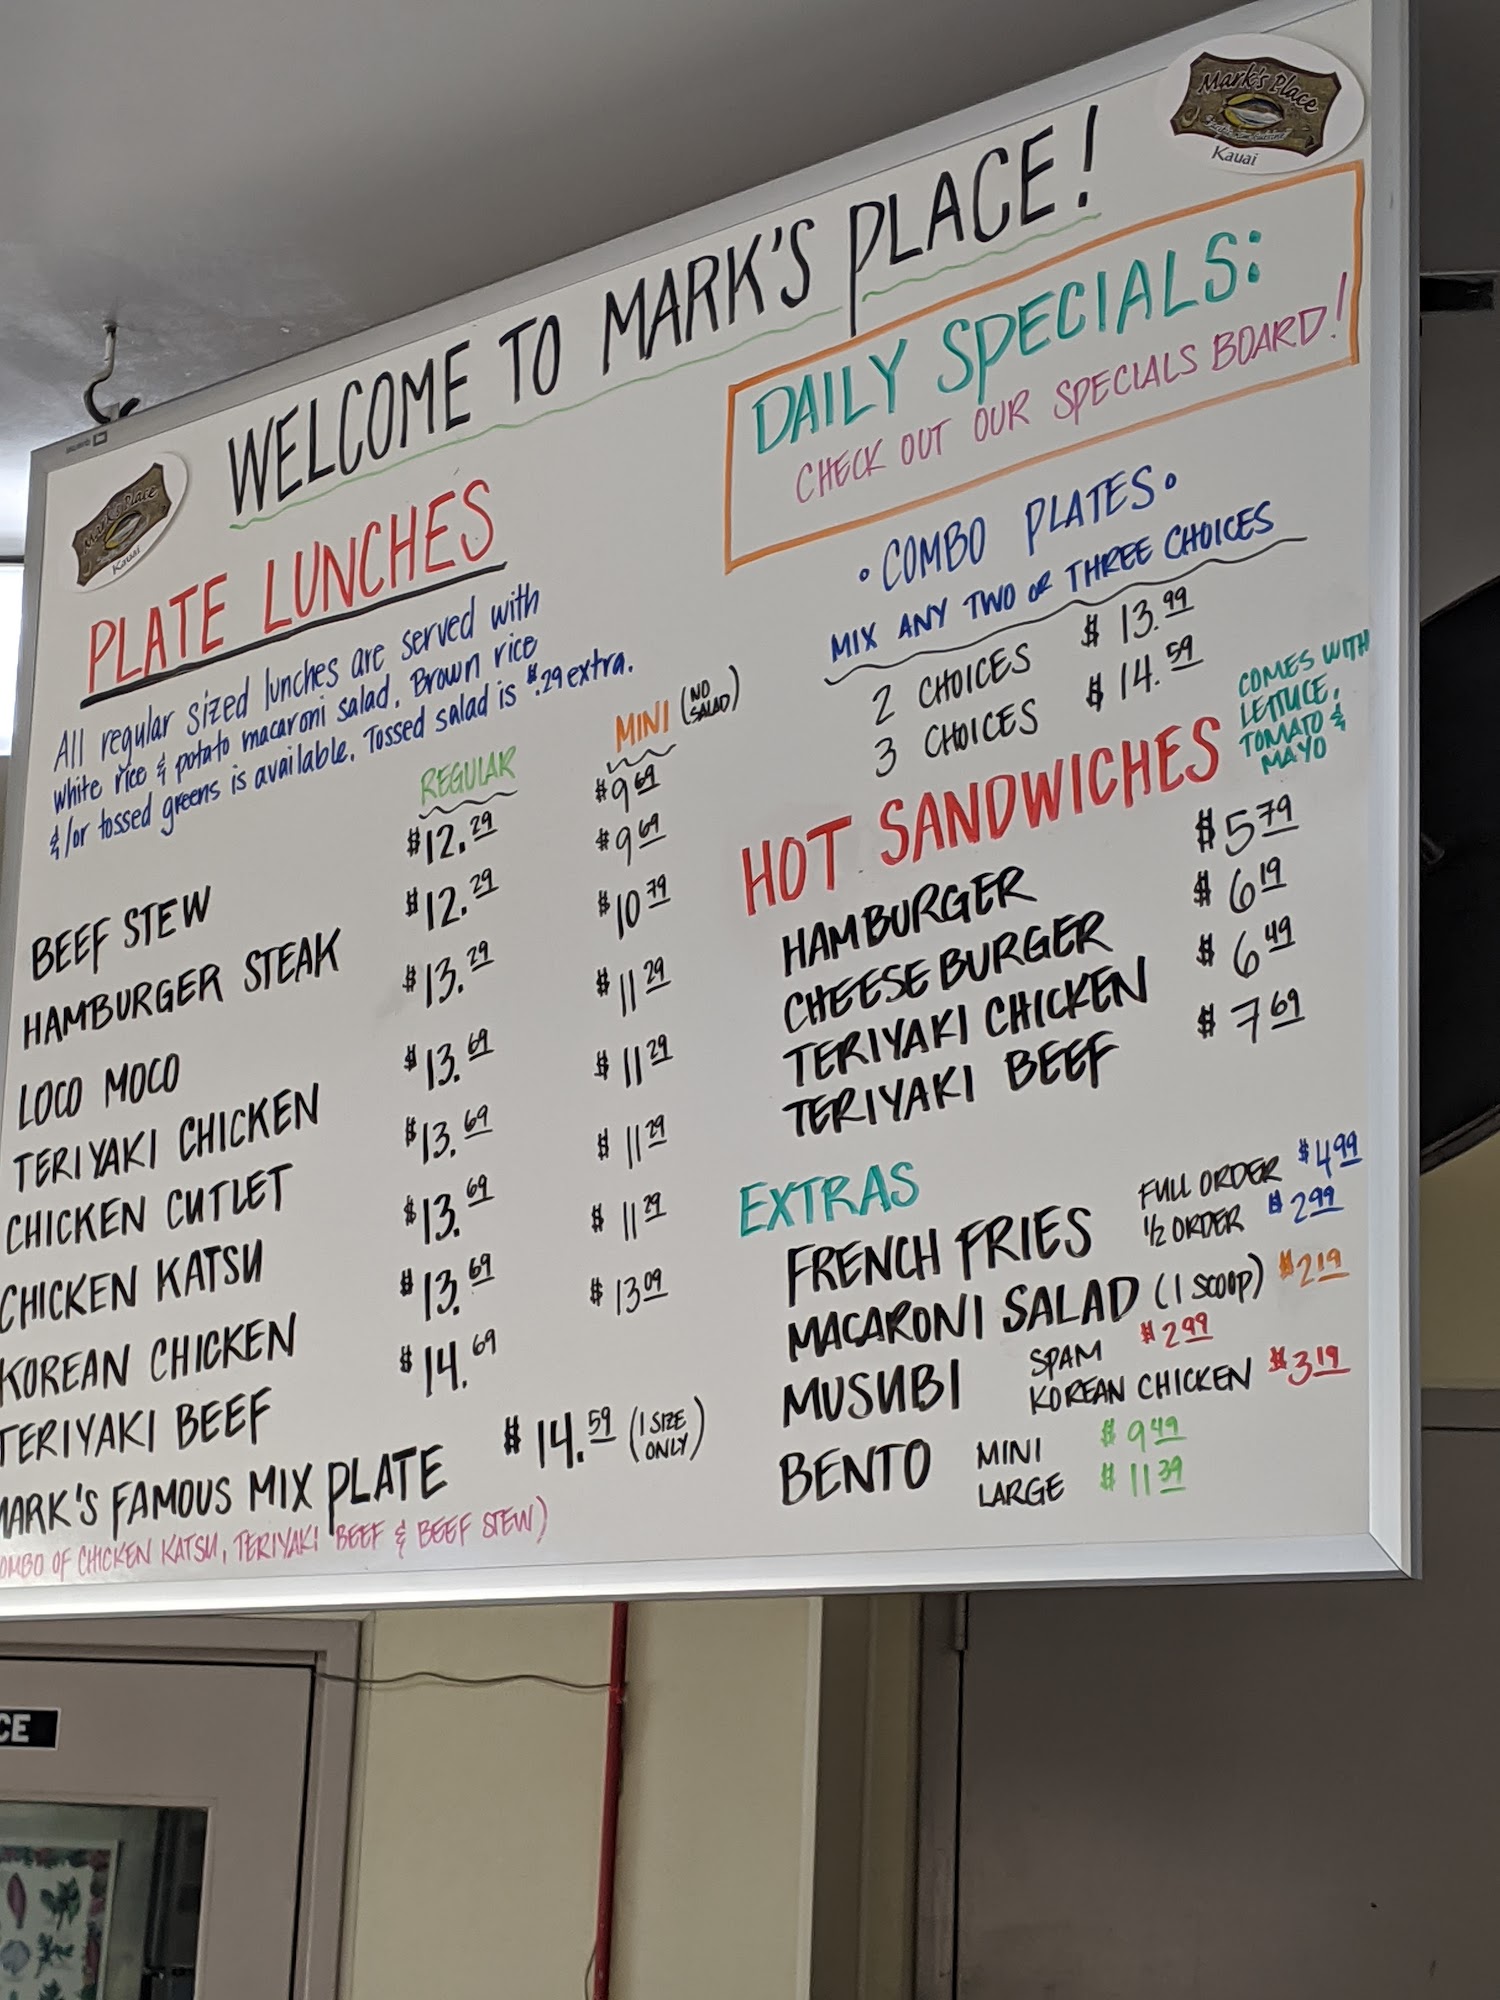 Mark's Place
Kauai
WELCOME TO MARK'S PLACE!
Mark's Place
Kauai
PLATE LUNCHES
All regular sized lunches are served with
white rice & potato macaroni salad. Brown rice
&/or tossed greens is available. Tossed salad is $.29 extra.
REGULAR MINI (NO SALAD)
BEEF STEW $12.29 $9 69
HAMBURGER STEAK $12.29 $9 69
LOCO MOCO $13.29 $10 79
TERIYAKI CHICKEN $13.69 $11 29
CHICKEN CUTLET $13.69 $11 29
CHICKEN KATSU $13.69 $11 29
KOREAN CHICKEN $13.69 $11 29
TERIYAKI BEEF $14.69 $13 09
MARK'S FAMOUS MIX PLATE $14.59 (1 SIZE ONLY)
OMBO OF CHICKEN KATSU, TERIYAKI BEEF & BEEF STEW)
DAILY SPECIALS:
CHECK OUT OUR SPECIALS BOARD!
• COMBO PLATES •
MIX ANY TWO OR THREE CHOICES
2 CHOICES $13.99
3 CHOICES $14.59
HOT SANDWICHES
COMES WITH
LETTUCE,
TOMATO &
MAYO
HAMBURGER $5 79
CHEESEBURGER $6 19
TERIYAKI CHICKEN $6 49
TERIYAKI BEEF $7 69
EXTRAS
FRENCH FRIES FULL ORDER $4 99
1/2 ORDER $2 99
MACARONI SALAD (1 SCOOP) $2 19
MUSUBI SPAM $2 99
KOREAN CHICKEN $3 19
BENTO MINI $9 49
LARGE $11 39
CE